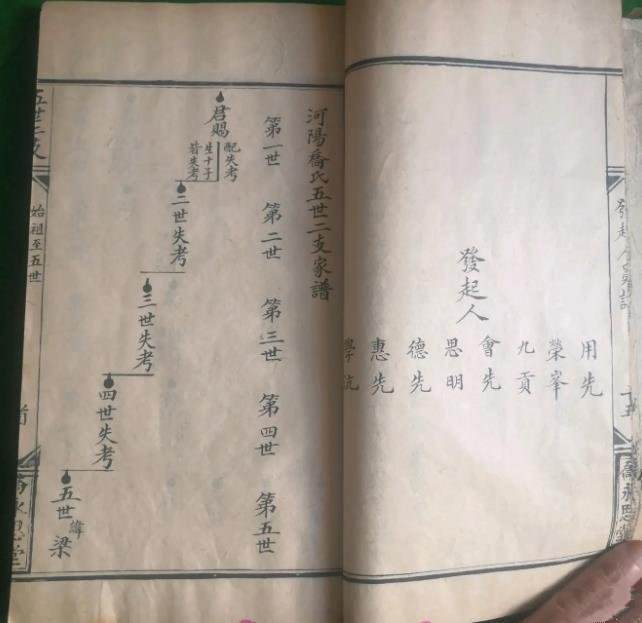 發起人
用先
榮峯
九貢
會先
思明
德先
惠先
河陽喬氏五世二支家譜
第一世
第二世
第三世
第四世
第五世
君賜
配失考
生十子
皆失考
二世失考
三世失考
四世失考
五世
緯
梁
五世二支
始祖至五世
喬永思堂